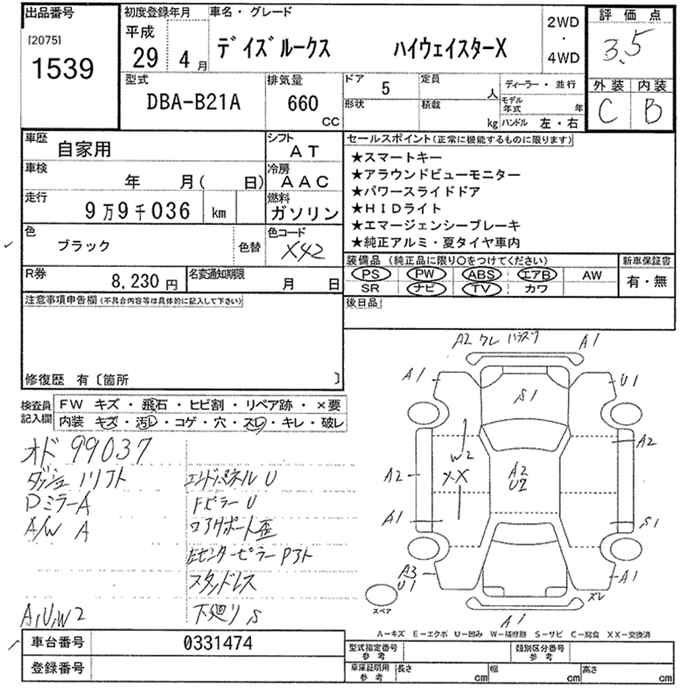 出品番号
[2075]
1539
初度登録年月
平成
29年 4月
車名・グレード
デイズルークス ハイウェイスターX
2WD
・
4WD
評価点
3.5
外装 内装
C B
型式
DBA-B21A
排気量
660
CC
ドア 5
形状
定員 人
積載 kg
ディーラー・並行
モデル年式 年
ハンドル 左・右
車歴
自家用
シフト
AT
車検
年 月( 日)
冷房
AAC
走行
9万9千036 km
燃料
ガソリン
色
ブラック
色替
色コード
X42
R券
8,230 円
名変通知期限
月 日
セールスポイント(正常に機能するものに限ります)
★スマートキー
★アラウンドビューモニター
★パワースライドドア
★HIDライト
★エマージェンシーブレーキ
★純正アルミ・夏タイヤ車内
装備品 (純正品に限り○をつけてください)
PS PW ABS エアB AW
SR ナビ TV カワ
新車保証書
有・無
後日品
注意事項申告欄(不具合内容等は具体的に記入して下さい)
修復歴 有〔箇所 〕
検査員記入欄
FW キズ・飛石・ヒビ割・リペア跡・×要
内装 キズ・汚レ・コゲ・穴・スレ・キレ・破レ
オド 99037
ダッシュ リフト
DミラーA
A/W A
A,U,W2
エンドパネル U
Fピラー U
コアサポート歪
左センターピラー P3ト
スタッドレス
下廻り S
A2 ワレ A1
A1 S1 U1
W2 A2
A2 XX A2 U2
A1 S1
A3 U1 A1
スレ
スペア
A1
A-キズ E-エクボ U-凹み W-補修跡 S-サビ C-腐食 XX-交換済
車台番号 0331474
登録番号
型式指定番号 参考
類別区分番号 参考
車庫証明用 参考 長さ cm 幅 cm 高さ cm